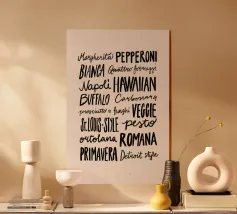 Margherita PEPPERONI
BIANCA Quattro formaggi
Napoli HAWAIIAN
BUFFALO Carbonara
prosciutto e funghi VEGGIE
St. LOUIS-STYLE pesto
ortolana ROMANA
PRIMAVERA Detroit style